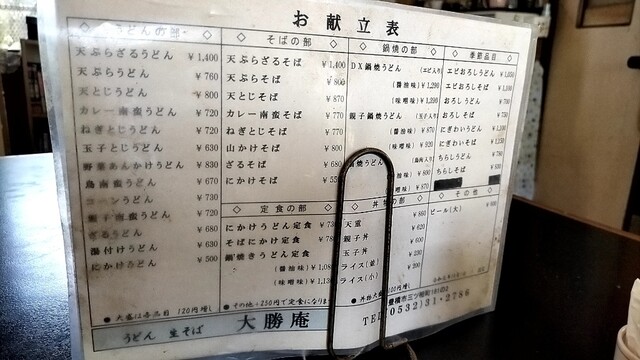 お献立表
うどんの部
天ぷらざるうどん ￥1,400
天ぷらうどん ￥760
天とじうどん ￥800
カレー南蛮うどん ￥720
ねぎとじうどん ￥720
玉子とじうどん ￥630
野菜あんかけうどん ￥830
鳥南蛮うどん ￥670
コーンうどん ￥730
うどん ￥720
ざるうどん ￥680
湯付けうどん ￥630
にかけうどん ￥500
● 大盛は各品目 120円増し
そばの部
天ぷらざるそば ￥1,400
天ぷらそば
天とじそば ￥870
カレー南蛮そば ￥770
ねぎとじそば ￥770
山かけそば ￥800
ざるそば ￥680
にかけそば
定食の部
にかけうどん定食
そばにかけ定食
鍋焼きうどん定食
(醤油味)
(味噌味)
● その他+250円で定食になります
鍋焼の部
DX鍋焼うどん (エビ入り)
(醤油味) ￥1,290
(味噌味) ￥1,290
親子鍋焼うどん (玉子入り)
(醤油味) ￥870
(味噌味) ￥920
鍋焼うどん
￥800
￥870
丼物の部
天重 ￥860
親子丼 ￥620
玉子丼 ￥600
ライス(並) ￥230
ライス(小) ￥200
季節品目
エビおろしうどん
エビおろしそば
おろしうどん
おろしそば
にぎわいうどん
にぎわいそば
ちらしうどん
ちらしそば
その他
ビール(大)
うどん 生そば 大勝庵
豊橋市三ツ相町
TEL(0532)31-2786